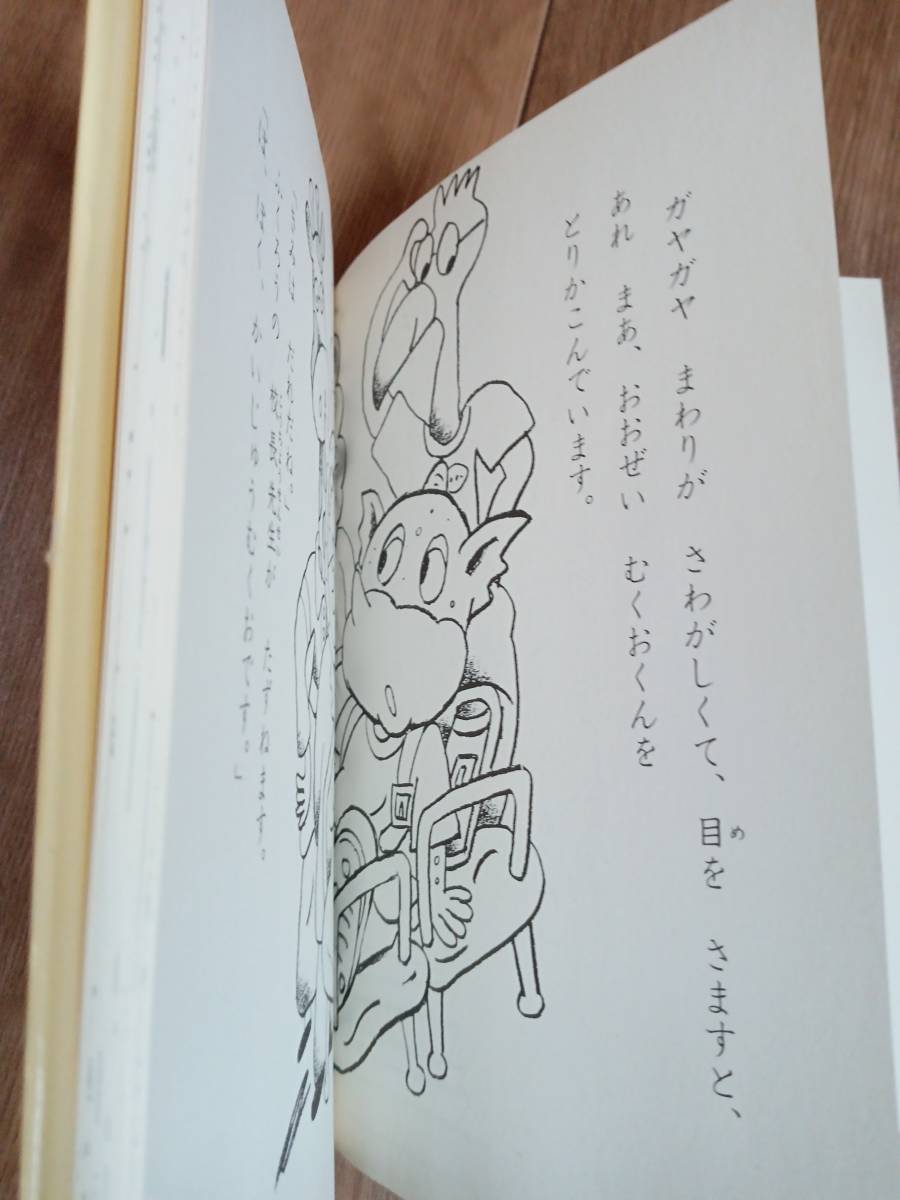 ガヤガヤ まわりが さわがしくて、目を さますと、
め
あれ まあ、おおぜい むくおくんを
とりかこんでいます。
たずねます。
「ぼ、ぼく、かいじゅうむくおです。」